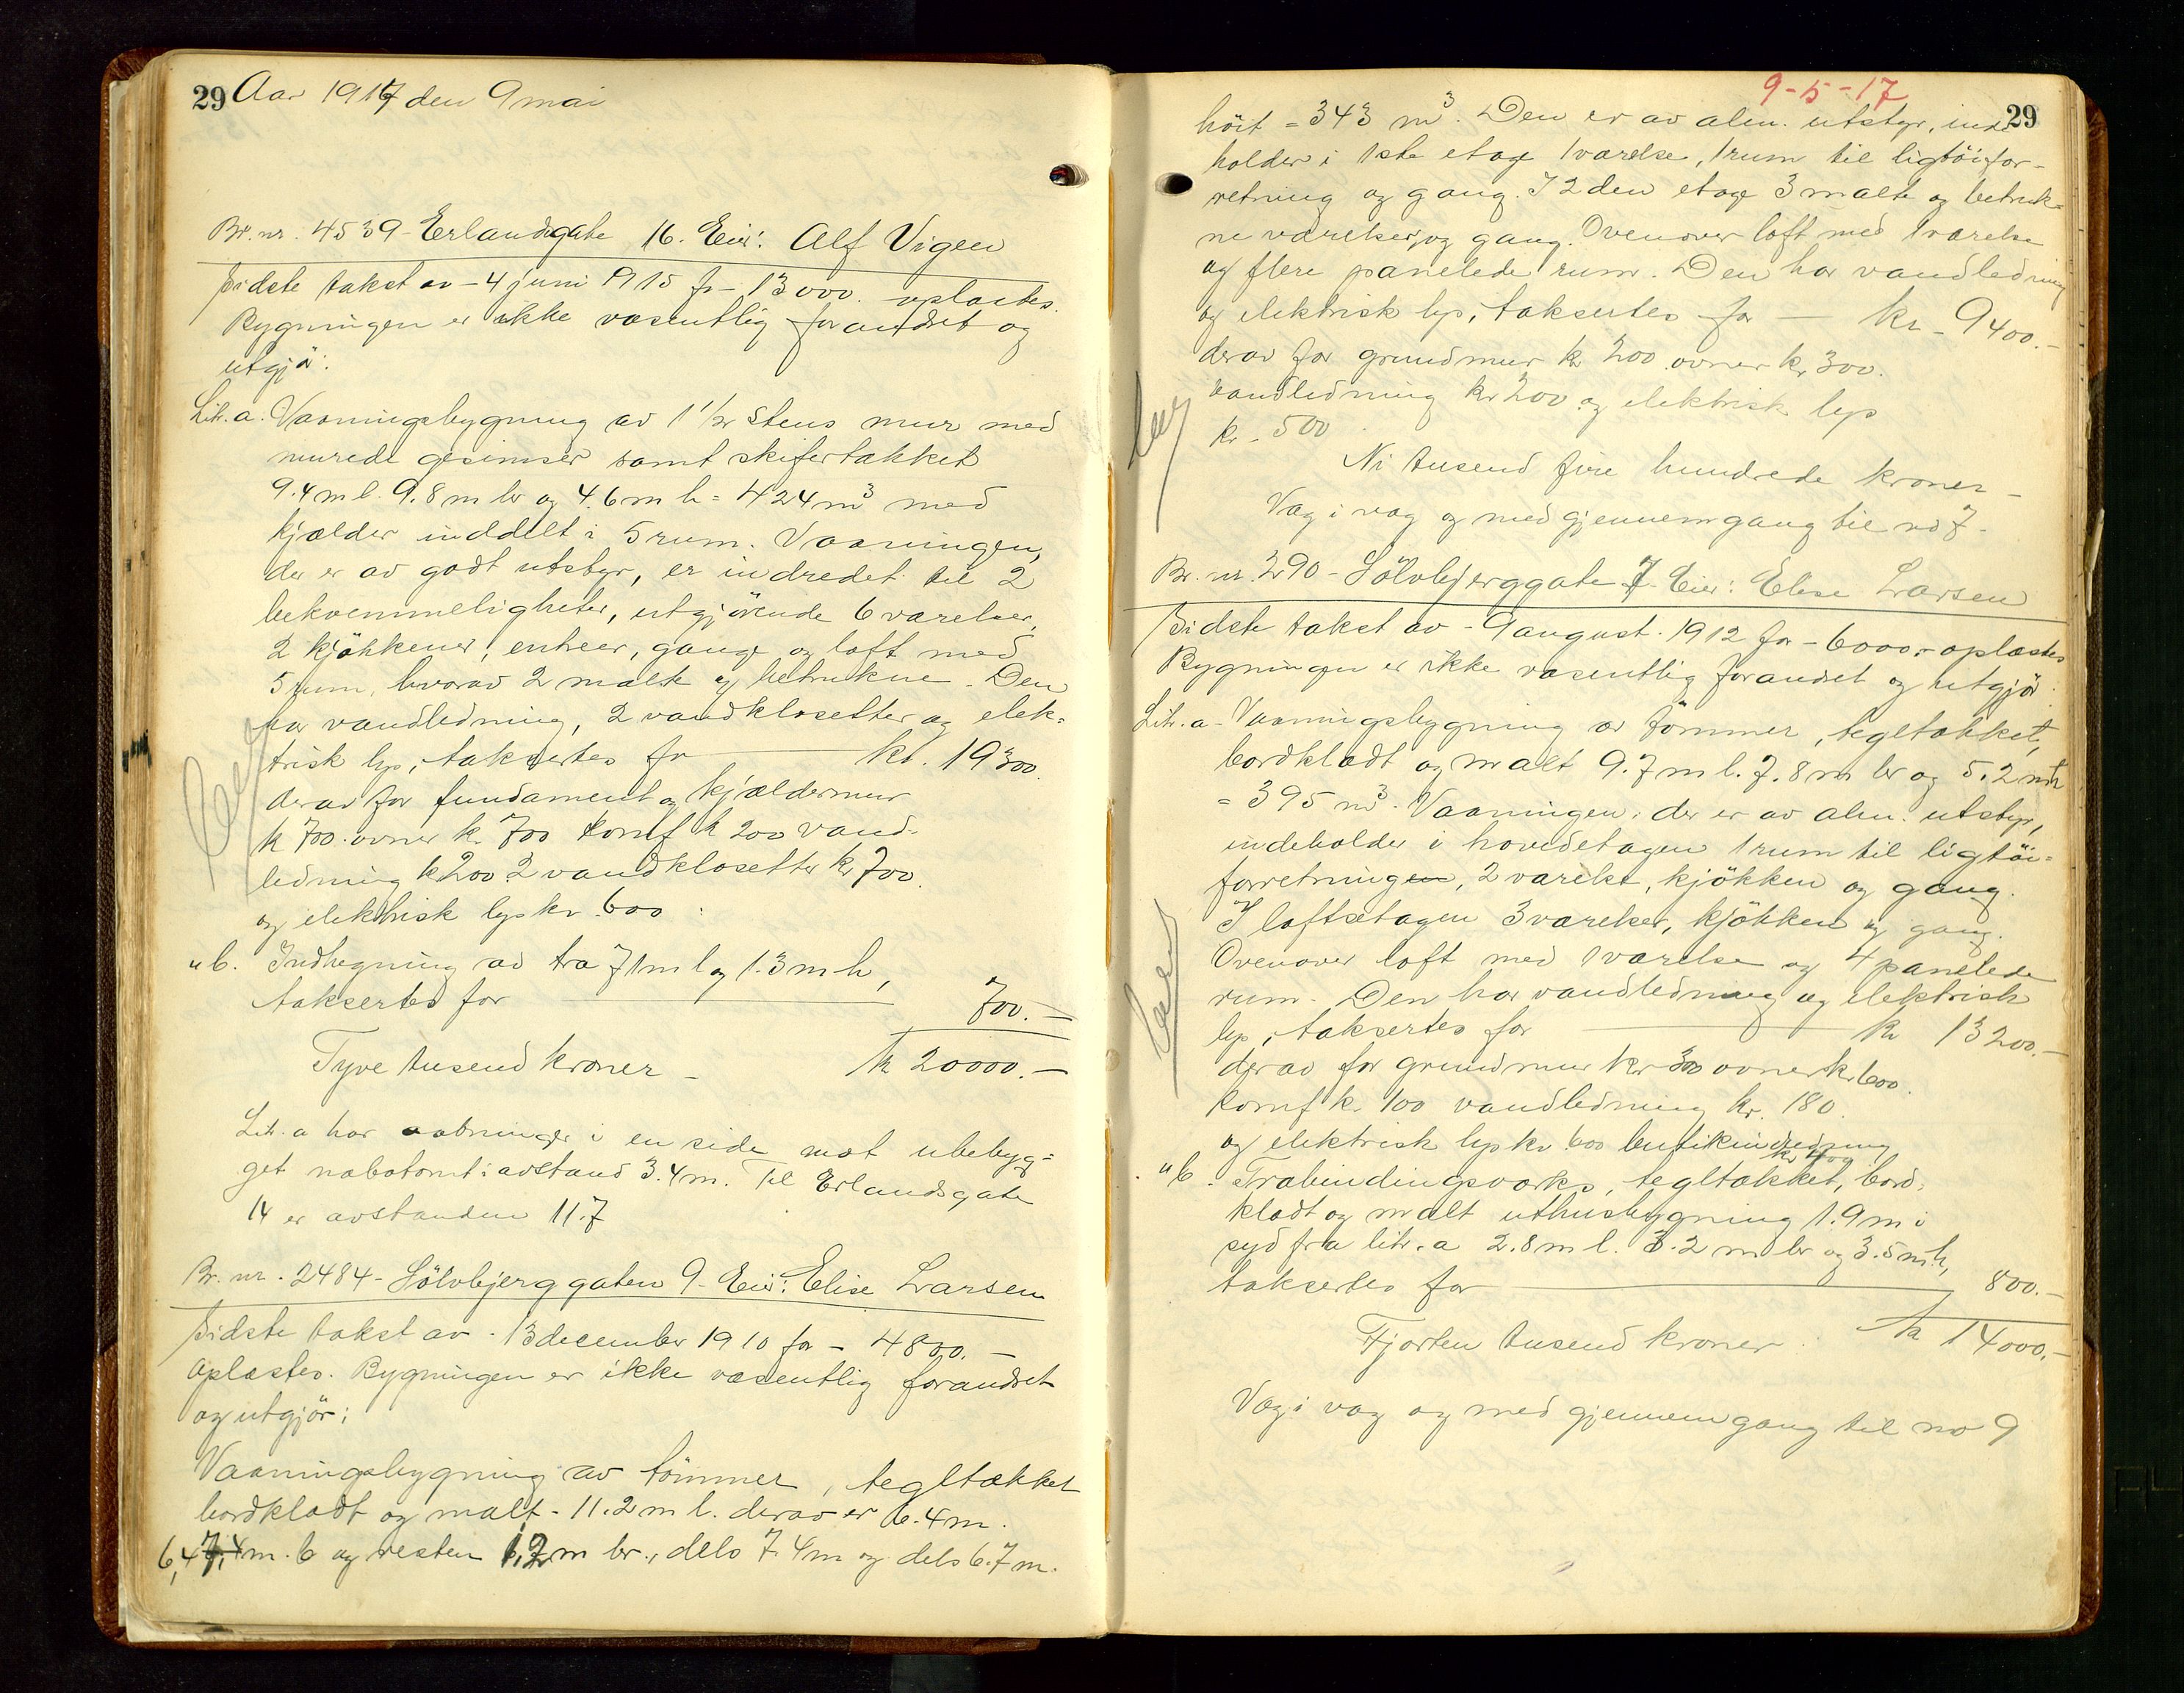 29 Aar 1917 den 9 mai
Br. nr. 4539 - Erlandsgate 16. Eier: Alf Vigen
Sidste takst av - 4 juni 1915 for - 13000. oplæstes.
Bygningen er ikke væsentlig forandret og
utgjør:
Litr. a. Vaaningsbygning av 1 1/2 Stens mur med
murede gesimser samt skifertækket
9.4 m l. 9.8 m br og 4.6 m h = 424 m³ med
kjælder inddelt i 5 rum. Vaaningen,
der er av godt utstyr, er indredet til 2
bekvemmeligheter, utgjørende 6 værelser,
2 kjøkkener, entreer, gange og loft med
5 rum, hvorav 2 malte og betrukne. Den
har vandledning, 2 vandklosetter og elek=
trisk lys, taksertes for kr. 19300.
derav for fundament og kjældermur
kr 700. ovner kr. 700 komf kr 200 vand-
ledning kr 200 2 vandklosetter kr 700.
og elektrisk lys kr. 600.
" b. Indhegning av træ 71 m l og 1.3 m h,
taksertes for 700.-
Tyve tusend kroner - kr 20000.-
Litr. a har aabninger i en side mot ubebyg=
get nabotomt i avstand 3.4 m. Til Erlandsgate
14 er avstanden 11.7
Br. nr. 2484 - Sölvbjerggaten 9 - Eier: Elise Larsen
Sidste takst av - 13 december 1910 for - 4800.-
oplæstes. Bygningen er ikke væsentlig forandret
og utgjør:
Vaaningsbygning av tömmer, tegltækket
bordklædt og malt - 11.2 m l. derav er 6.4 m.
6,4 7,4 m. b og resten 1,2 m br., dels 7.4 m og dels 6.7 m.
9-5-17
29
höit = 343 m³. Den er av alm. utstyr, inde
holder i 1ste etage 1 værelse, 1 rum til ligtöifor-
retning og gang. I 2den etage 3 malte og betruk=
ne værelser, og gang. Ovenover loft med 1 værelse
og flere panelede rum. Den har vandledning
og elektrisk lys, taksertes for - kr - 9400.-
derav for grundmur kr 200 ovner kr 300.
vandledning kr 200 og elektrisk lys
kr. 500
Ni tusend fire hundrede kroner -
Væg i væg og med gjennemgang til no 7.
Br. nr. 290 - Sölvbjerggate 7 - Eier: Elise Larsen
Sidste takst av - 9 august. 1912 for - 6000.- oplæstes
Bygningen er ikke væsentlig forandret og utgjør
Litr. a - Vaaningsbygning av tömmer, tegltækket,
bordklædt og malt 9.7 m l. 7.8 m br og 5.2 m h
= 395 m³. Vaaningen, der er av alm. utstyr,
indeholder i hovedetagen 1 rum til ligtöi=
forretningen, 2 værelse, kjökken og gang.
I loftsetagen 3 værelser, kjökken og gang.
Ovenover loft med 1 værelse og 4 panelede
rum. Den har vandledning og elektrisk
lys, taksertes for kr 13200.-
derav for grundmur kr 300 ovner kr 600.
komf kr. 100 vandledning kr. 180.
og elektrisk lys kr. 600 butikindredning
kr 400
" b. Træbindingsverks, tegltækket, bord-
klædt og malt uthusbygning 1.9 m i
syd fra litr. a 2.8 m l. 3.2 m br og 3.5 m h,
taksertes for 800.-
Fjorten tusend kroner. kr 14000.-
Væg i væg og med gjennemgang til no 9